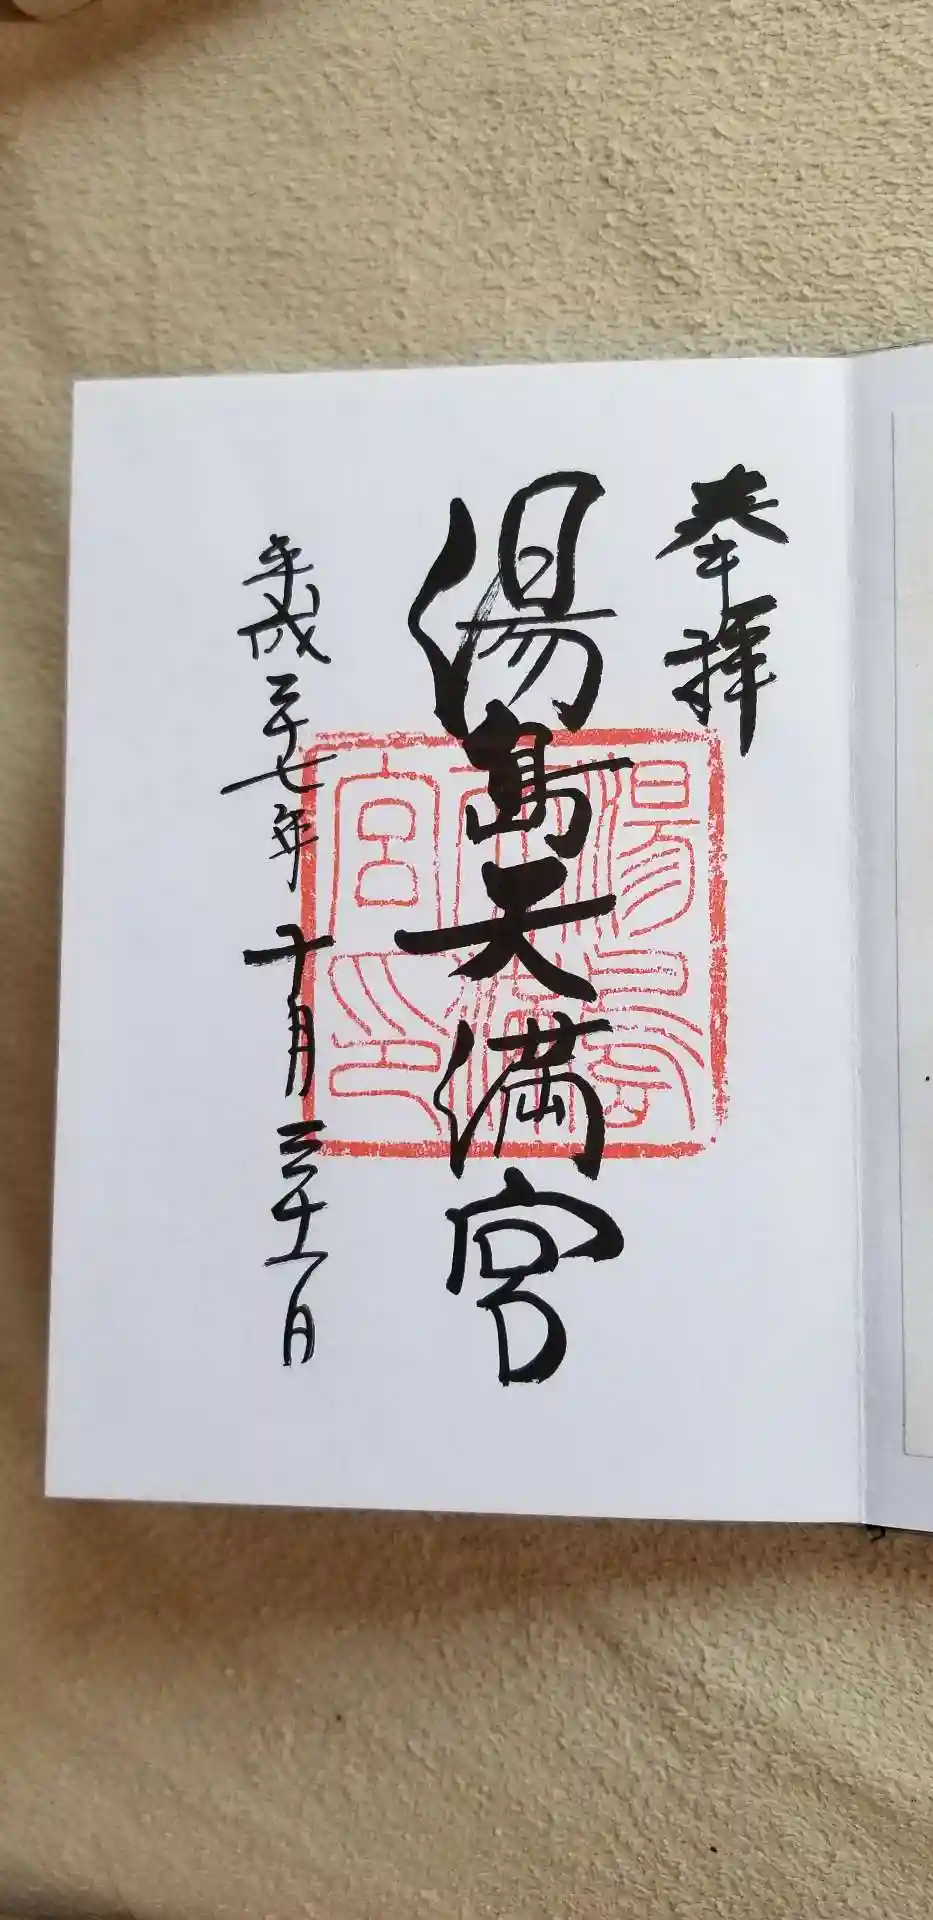 奉拝
湯島天満宮
平成二十七年十月三十一日
湯島
天満
宮印